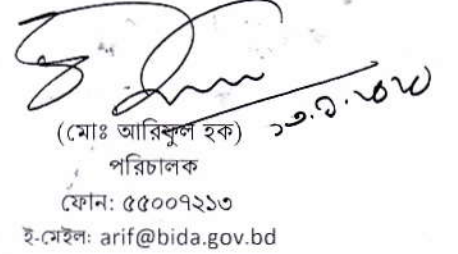 (মোঃ আরিফুল হক)
পরিচালক
ফোন: ৫৫০০৭২১৩
ই-মেইলঃ arif@bida.gov.bd